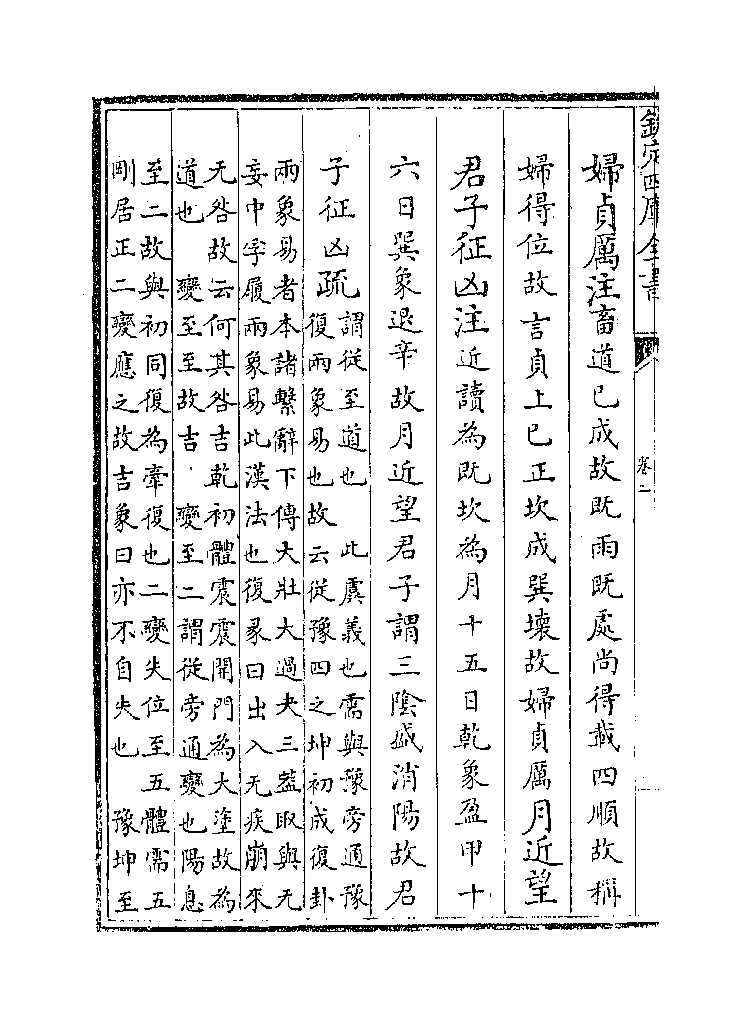 欽定四庫全書
卷二
婦貞厲注畜道已成故既雨既處尚得載四順故稱
婦得位故言貞上已正坎成巽壞故婦貞厲月近望
君子征凶注近讀為既坎為月十五日乾象盈甲十
六日巽象退辛故月近望君子謂三陰盛消陽故君
子征凶疏
謂從至道也　此虞義也需與豫旁通豫
復兩象易也故云從豫四之坤初成復卦
兩象易者本諸繫辭下傳大壯大過夬三葢取與无
妄中孚履兩象易此漢法也復彖曰出入无疾崩來
无咎故云何其咎吉乾初體震震開門為大塗故為
道也　變至至故吉　變至二謂從旁通變也陽息
至二故與初同復為牽復也二變失位至五體需五
剛居正二變應之故吉象曰亦不自失也　豫坤至